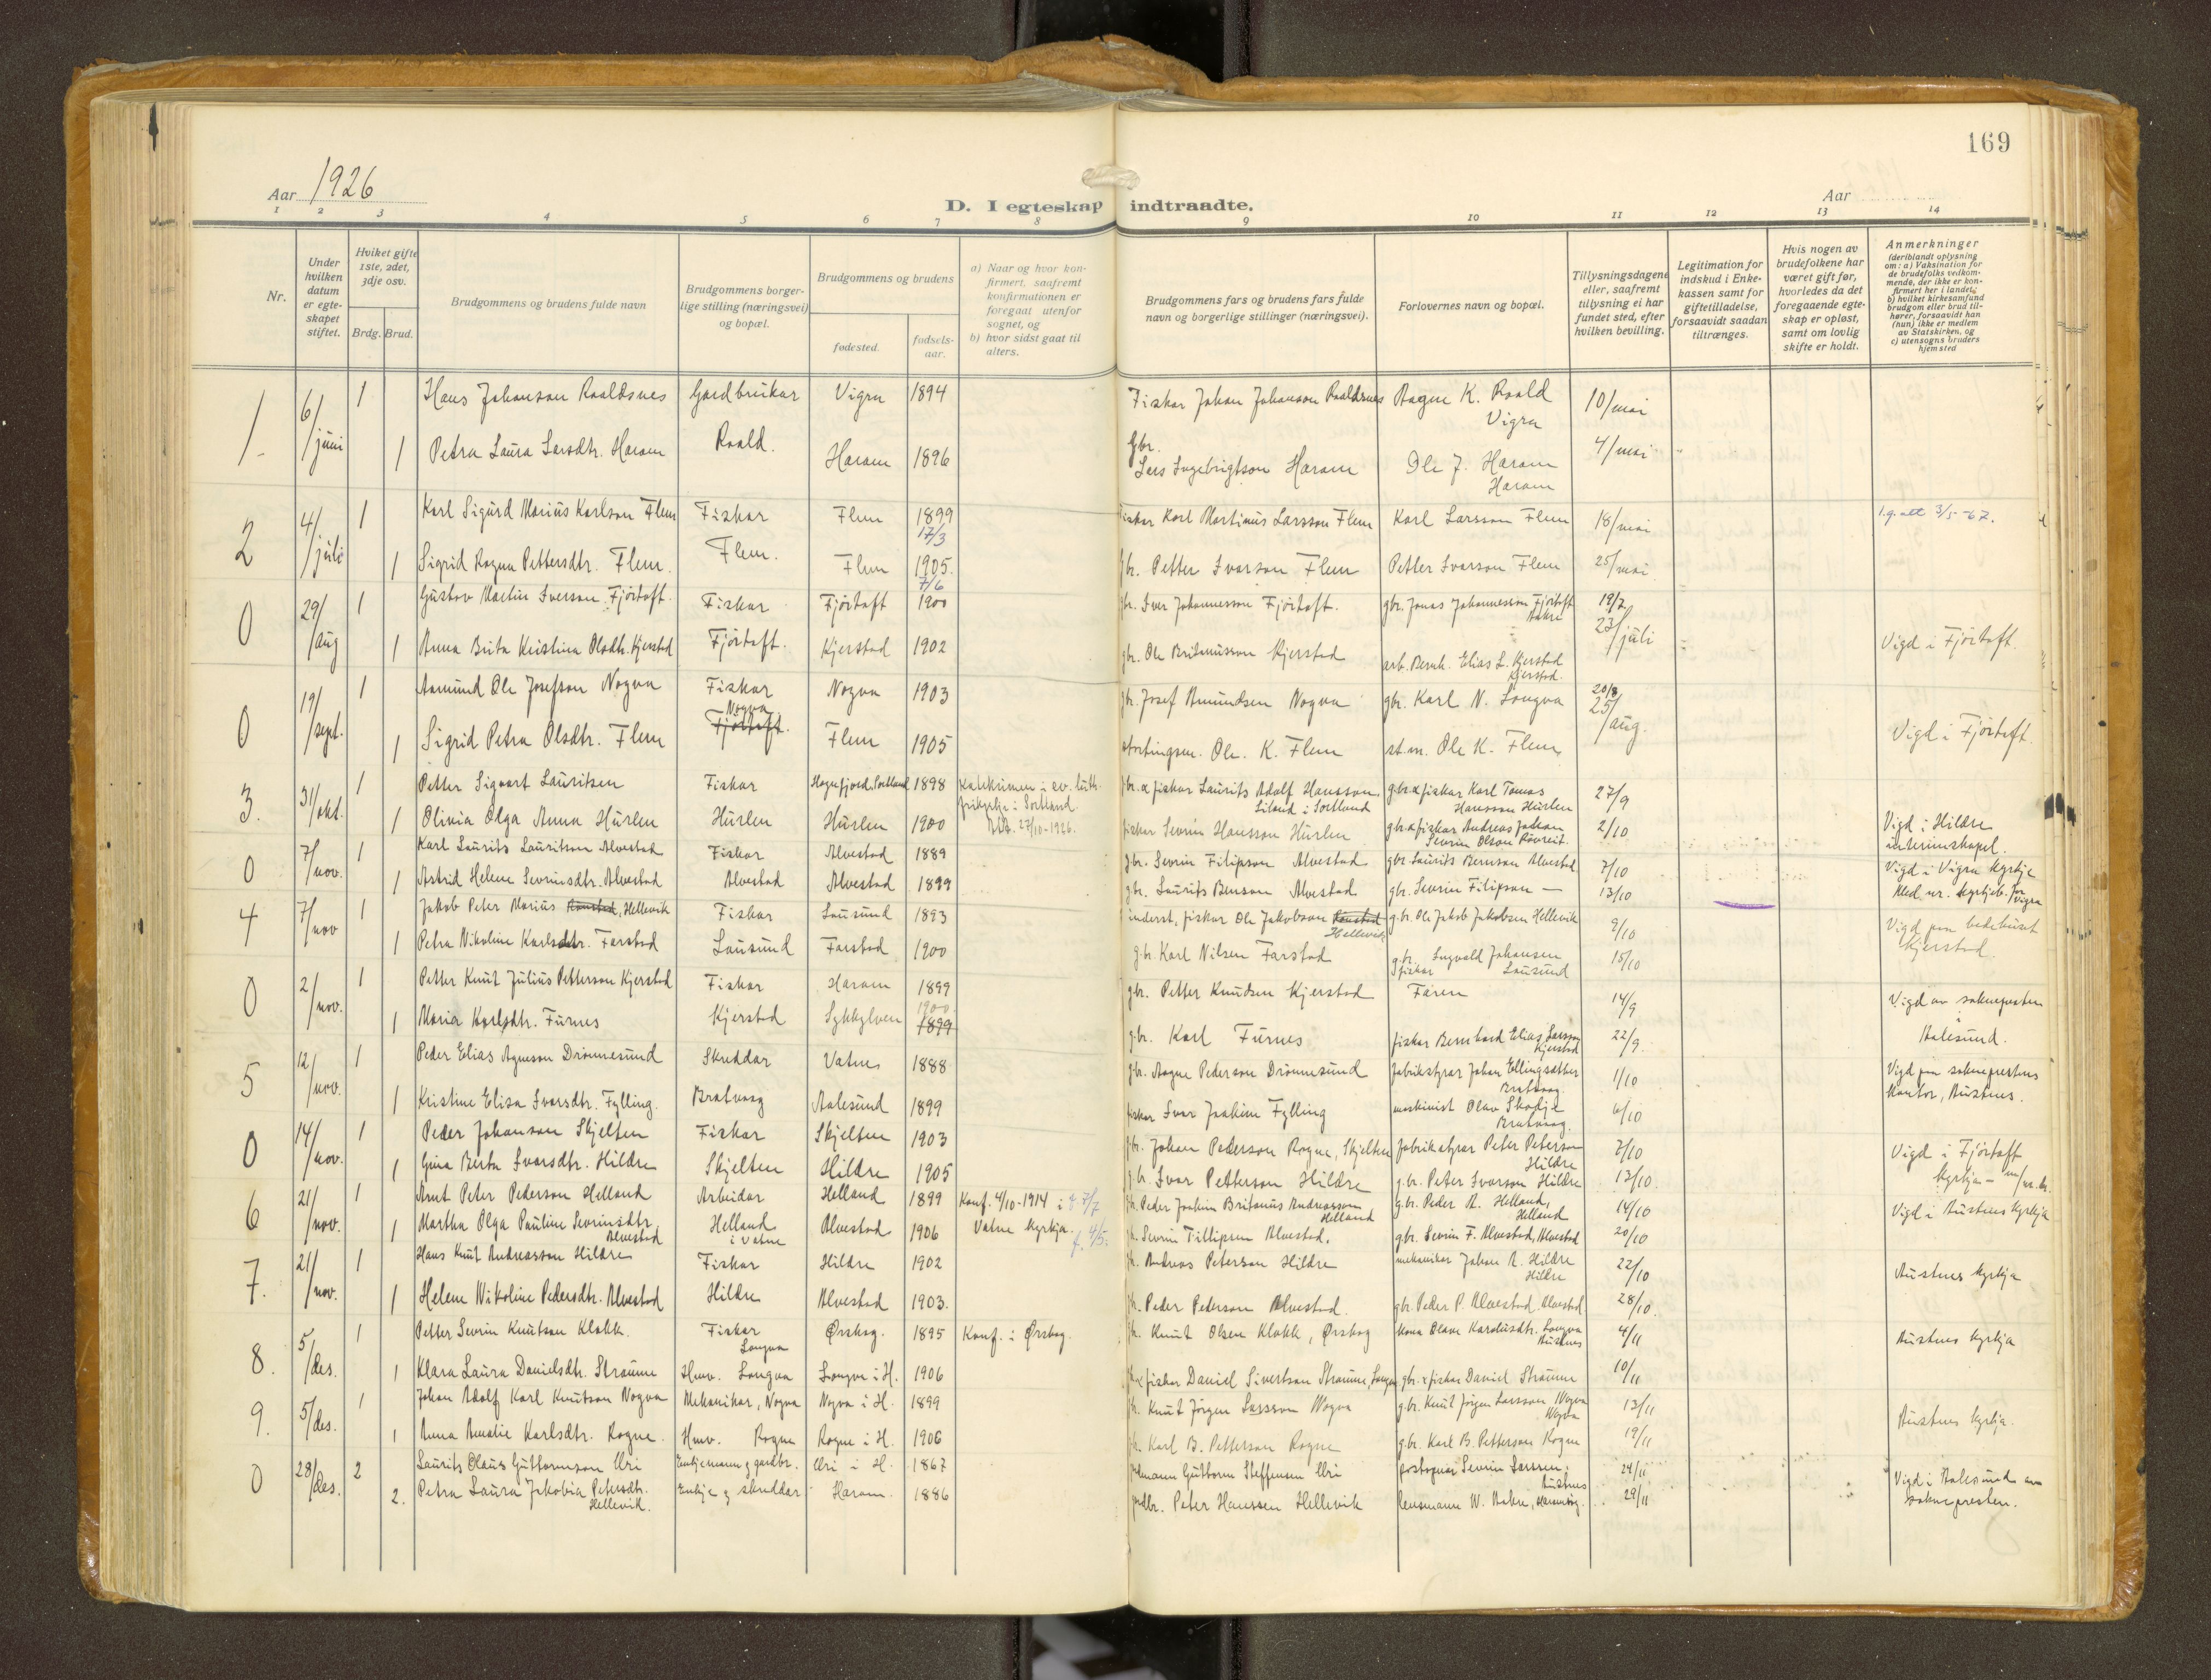 169
Aar 1926
Aar
D. I egteskap indtraadte.
1 2 3 4 5 6 7 8 9 10 11 12 13 14
Nr.
Under hvilken datum er egteskapet stiftet.
Hvilket gifte 1ste, 2det, 3dje osv.
Brdg. Brud.
Brudgommens og brudens fulde navn
Brudgommens borgerlige stilling (næringsvei) og bopæl.
Brudgommens og brudens
fødested.
fødselsaar.
a) Naar og hvor konfirmert, saafremt konfirmationen er foregaat utenfor sognet, og
b) hvor sidst gaat til alters.
Brudgommens fars og brudens fars fulde navn og borgerlige stillinger (næringsvei).
Forlovernes navn og bopæl.
Tillysningsdagene eller, saafremt tillysning ei har fundet sted, efter hvilken bevilling.
Legitimation for indskud i Enkekassen samt for giftetilladelse, forsaavidt saadan tiltrænges.
Hvis nogen av brudefolkene har været gift før, hvorledes da det foregaaende egteskap er opløst, samt om lovlig skifte er holdt.
Anmerkninger (deriblandt oplysning om: a) Vaksination for de brudefolks vedkommende, der ikke er konfirmert her i landet, b) hvilket kirkesamfund brudgom eller brud tilhører, forsaavidt han (hun) ikke er medlem av Statskirken, og c) utensogns bruders hjemsted
1. 6/juni 1 Hans Johanson Roaldsnes Gardbrukar Vigra 1894 Fiskar Johan Johanson Roaldsnes Aagne K. Roald Vigra 10/mai
1 Petra Laura Larsdtr. Haram Roald. Haram 1896 Gbr. Lars Ingebrigtson Haram Ole J. Haram Haram 4/mai
2 4/juli 1 Karl Sigurd Marius Karlson Flem Fiskar Flem 1899 17/3 Fiskar Karl Martinus Larsson Flem Karl Larsson Flem 18/mai 3/5-67.
1 Sigrid Ragna Pettersdtr. Flem. Flem. Flem 1905. 7/6 gbr. Petter Ivarson Flem Petter Ivarson Flem 25/mai
0 29/aug 1 Gustav Martin Iverson Fjørtoft. Fiskar Fjørtoft 1900 gbr. Iver Johannesson Fjørtoft. gbr. Jonas Johannesson Fjørtoft 19/7
1 Anna Brita Kristina Olsdtr. Kjerstad Fjørtoft. Kjerstad 1902 gbr. Ole Britanusson Kjerstad arb. Bernh. Elias L. Kjerstad Kjerstad. 23/juli Vigd i Fjørtoft.
0 19/sept. 1 Asmund Ole Josefson Nogva Fiskar Nogva 1903 gbr. Josef Amundsen Nogva gbr. Karl N. Longva 20/8
1 Sigrid Petra Olsdtr. Flem Nogva Fjørtoft. Flem 1905 stortingsm. Ole K. Flem st.m. Ole K. Flem 25/aug. Vigd i Fjørtoft.
3. 31/okt. 1 Petter Sigvart Lauritsen Fiskar Hognfjord, Sortland 1898 Katekumen i ev. luth. frikyrkje i Sortland 27/10-1926. gbr. & fiskar Laurits Adolf Hansson, Liland i Sortland gbr. & fiskar Karl Tomas Hansson Hurlen 27/9
1 Olivia Olga Anna Hurlen Hurlen Hurlen 1900 fiskar Sevrin Hansson Hurlen gbr. & fiskar Andreas Johan Sevrin Olson Røvreit. 2/10 Vigd i Hildre interimskapel.
0 7/nov. 1 Karl Laurits Lauritson Alvestad Fiskar Alvestad 1889 gbr. Sevrin Filipson Alvestad gbr. Laurits Bernson Alvestad 7/10 Vigd i Vigra kyrkje
1 Astrid Helene Sevrinsdtr. Alvestad Alvestad Alvestad 1899 gbr. Laurits Benson Alvestad gbr. Sevrin Filipson — 13/10 Med nr. kyrkjeb. for Vigra
4 7/nov 1 Jakob Peter Marius Hellevik Fiskar Lausund 1893 inderst, fiskar Ole Jakobson Hellevik g.br. Ole Jakob Jakobsen Hellevik 9/10 Vigd paa bedehuset Kjerstad.
1 Petra Nikoline Karlsdtr. Farstad Lausund Farstad 1900 g.br. Karl Nilsen Farstad g.br. fiskar Ingvald Johansen Lausund 15/10
0 2/nov. 1 Petter Knut Julius Petterson Kjerstad Fiskar Haram 1899 gbr. Petter Knudsen Kjerstad Faren 14/9 Vigd av soknepresten i Aalesund.
1 Maria Karlsdtr. Furnes Kjerstad Sykkylven 1900 1899 g.br. Karl Furnes fiskar Bernhard Elias Larsson Kjerstad 22/9.
5 12/nov. 1 Peder Elias Agneson Drønnesund Skreddar Vatne 1888 gbr. Aagne Pederson Drønnesund fabrikstyrar Johan Ellingsæter Brattvaag 1/10 Vigd paa sokneprestens kontor, Austnes.
1 Kristine Elisa Ivarsdtr. Fylling. Bratvaag Aalesund 1899 fiskar Ivar Joakim Fylling maskinist Olav Skodje Bratvaag. 6/10
0 14/nov. 1 Peder Johanson Skjelten Fiskar Skjelten 1903 gbr. Johan Pederson Rogne, Skjelten fabrikstyrar Peter Peterson Hildre 7/10 Vigd i Fjørtoft kyrkja
1 Gina Berta Ivarsdtr. Hildre Skjelten Hildre 1905 g.br. Ivar Petterson Hildre g.br. Peter Ivarson Hildre 13/10.
6 21/nov. 1 Arnt Peter Pederson Helland Arbeidar Helland 1899 Konf. 4/10-1914 i Vatne kyrkja. f. 7/7 Peder Joakim Britanus Andreasson Helland g.br. Peder A. Helland, Helland 14/10 Vigd i Austnes kyrkja
1 Martha Olga Pauline Sevrinsdtr. Alvestad Helland i Vatne Alvestad 1906 f. 4/5. Sevrin Fillipsen Alvestad. gbr. Sevrin F. Alvestad, Alvestad 20/10
7. 21/nov. 1 Hans Knut Andreasson Hildre Fiskar Hildre 1902 Andreas Peterson Hildre mekanikar Johan A. Hildre Hildre 22/10 Austnes kyrkja
1 Helene Nikoline Pedersdtr. Alvestad Hildre Alvestad 1903. Peder Pederson Alvestad. gbr. Peder P. Alvestad, Alvestad 28/10.
8. 5/des. 1 Petter Sevrin Knutson Klokk. Fiskar Longva Ørskog. 1895 Konf. i Ørskog. Knut Olsen Klokk, Ørskog kona Olave Karolusdtr. Longva Austnes 4/11 Austnes kyrkja
1 Klara Laura Danielsdtr. Straume Hmv. Longva Longva i H. 1906 & fiskar Daniel Sivertson Straume, Longva gbr. & fiskar Daniel Straume 10/11
9. 5/des. 1 Johan Adolf Karl Knutson Nogva Mekanikar, Nogva Nogva i H. 1899 Knut Jørgen Larsson Nogva g.br. Knut Jørgen Larsson Nogva Nogva 13/11 Austnes kyrkja.
1 Anna Amalie Karlsdtr. Rogne. Hmv. Rogne Rogne i H. 1906 Karl B. Petterson Rogne g.br. Karl B. Petterson Rogne 19/11
0 28/des. 2 Laurits Olaus Guttormson Uri Enkjemann og gardbr. Uri i H. 1867 Guttorm Steffensen Uri postopnar Sevrin Larssen. Austnes 24/11 Vigd i Aalesund av soknepresten.
2. Petra Laura Jakobia Petersdtr. Hellevik. Enkje og skreddar Haram 1886 gardbr. Peter Hanssen Hellevik lensmann W. Aakre, Haramsøy. 29/11